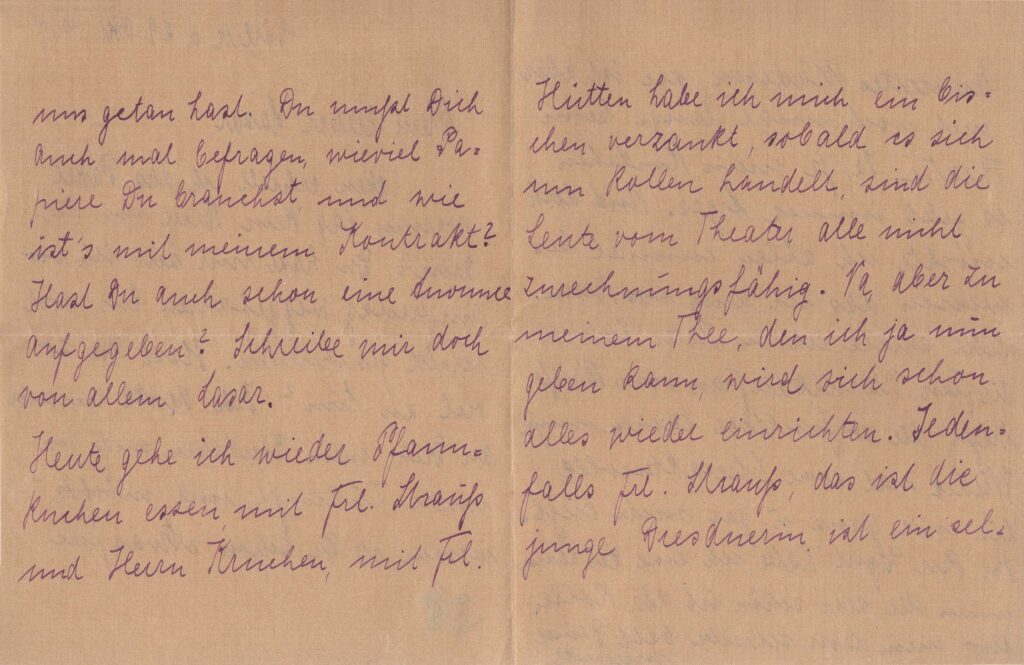 uns getan hast. Du mußt Dich
auch mal befragen, wieviel Pa-
piere Du brauchst und wie
ist's mit meinem Kontrakt?
Hast Du auch schon eine Anonnce
aufgegeben? Schreibe mir doch
von allem, Lasar.
Heute gehe ich wieder Pfann-
kuchen essen, mit Frl. Strauß
und Herrn Kruchen, mit Frl.
Hütten habe ich mich ein bis-
chen verzankt, sobald es sich
um Rollen handelt, sind die
Leute vom Theater alle nicht
zurechnungsfähig. Na, aber zu
meinem Thee, den ich ja nun
geben kann, wird sich schon
alles wieder einrichten. Jeden-
falls Frl. Strauß, das ist die
junge Dresdnerin ist ein sel-